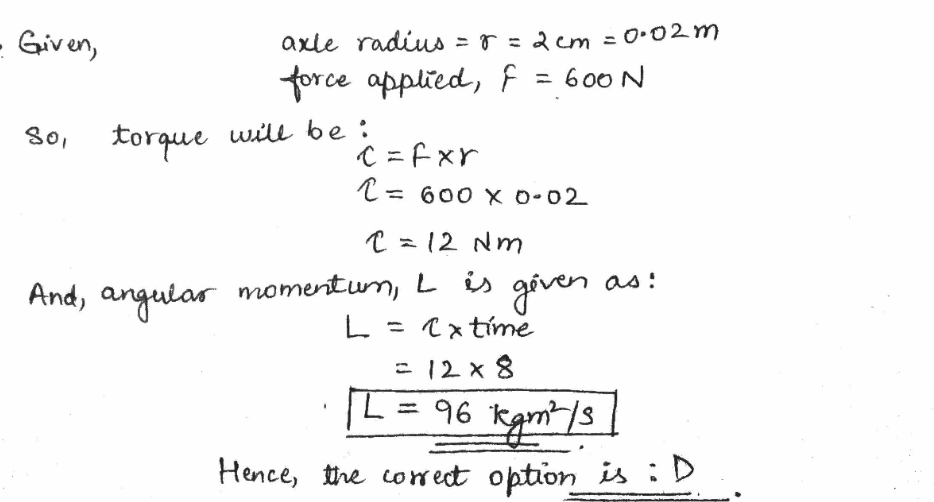 Given, axle radius = r = 2 cm = 0.02 m
force applied, F = 600 N
So, torque will be :
τ = F × r
τ = 600 × 0.02
τ = 12 Nm
And, angular momentum, L is given as :
L = τ × time
= 12 × 8
L = 96 kgm²/s
Hence, the correct option is : D.